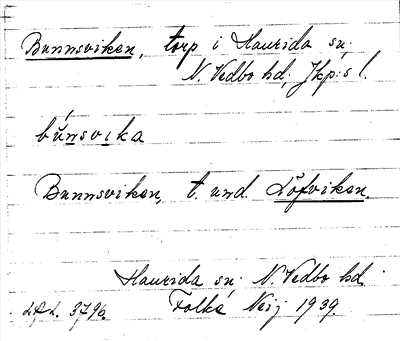 Bunnsviken, torp i Haurida sn;
N. Vedbo hd; Jkp:s l.
búnsvika
Bunnsviken, t. und. Löfviken.
Haurida sn; N. Vedbo hd.
LAL. 3796. Folke Neij 1939.